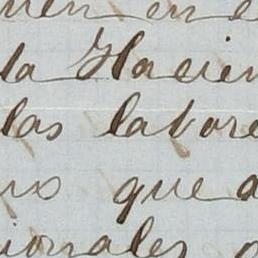 en e
la Hacien
las labore
que a
ionales